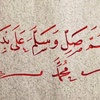 صَلِّ وَسَلِّمْ عَلَى
مُحَمَّد